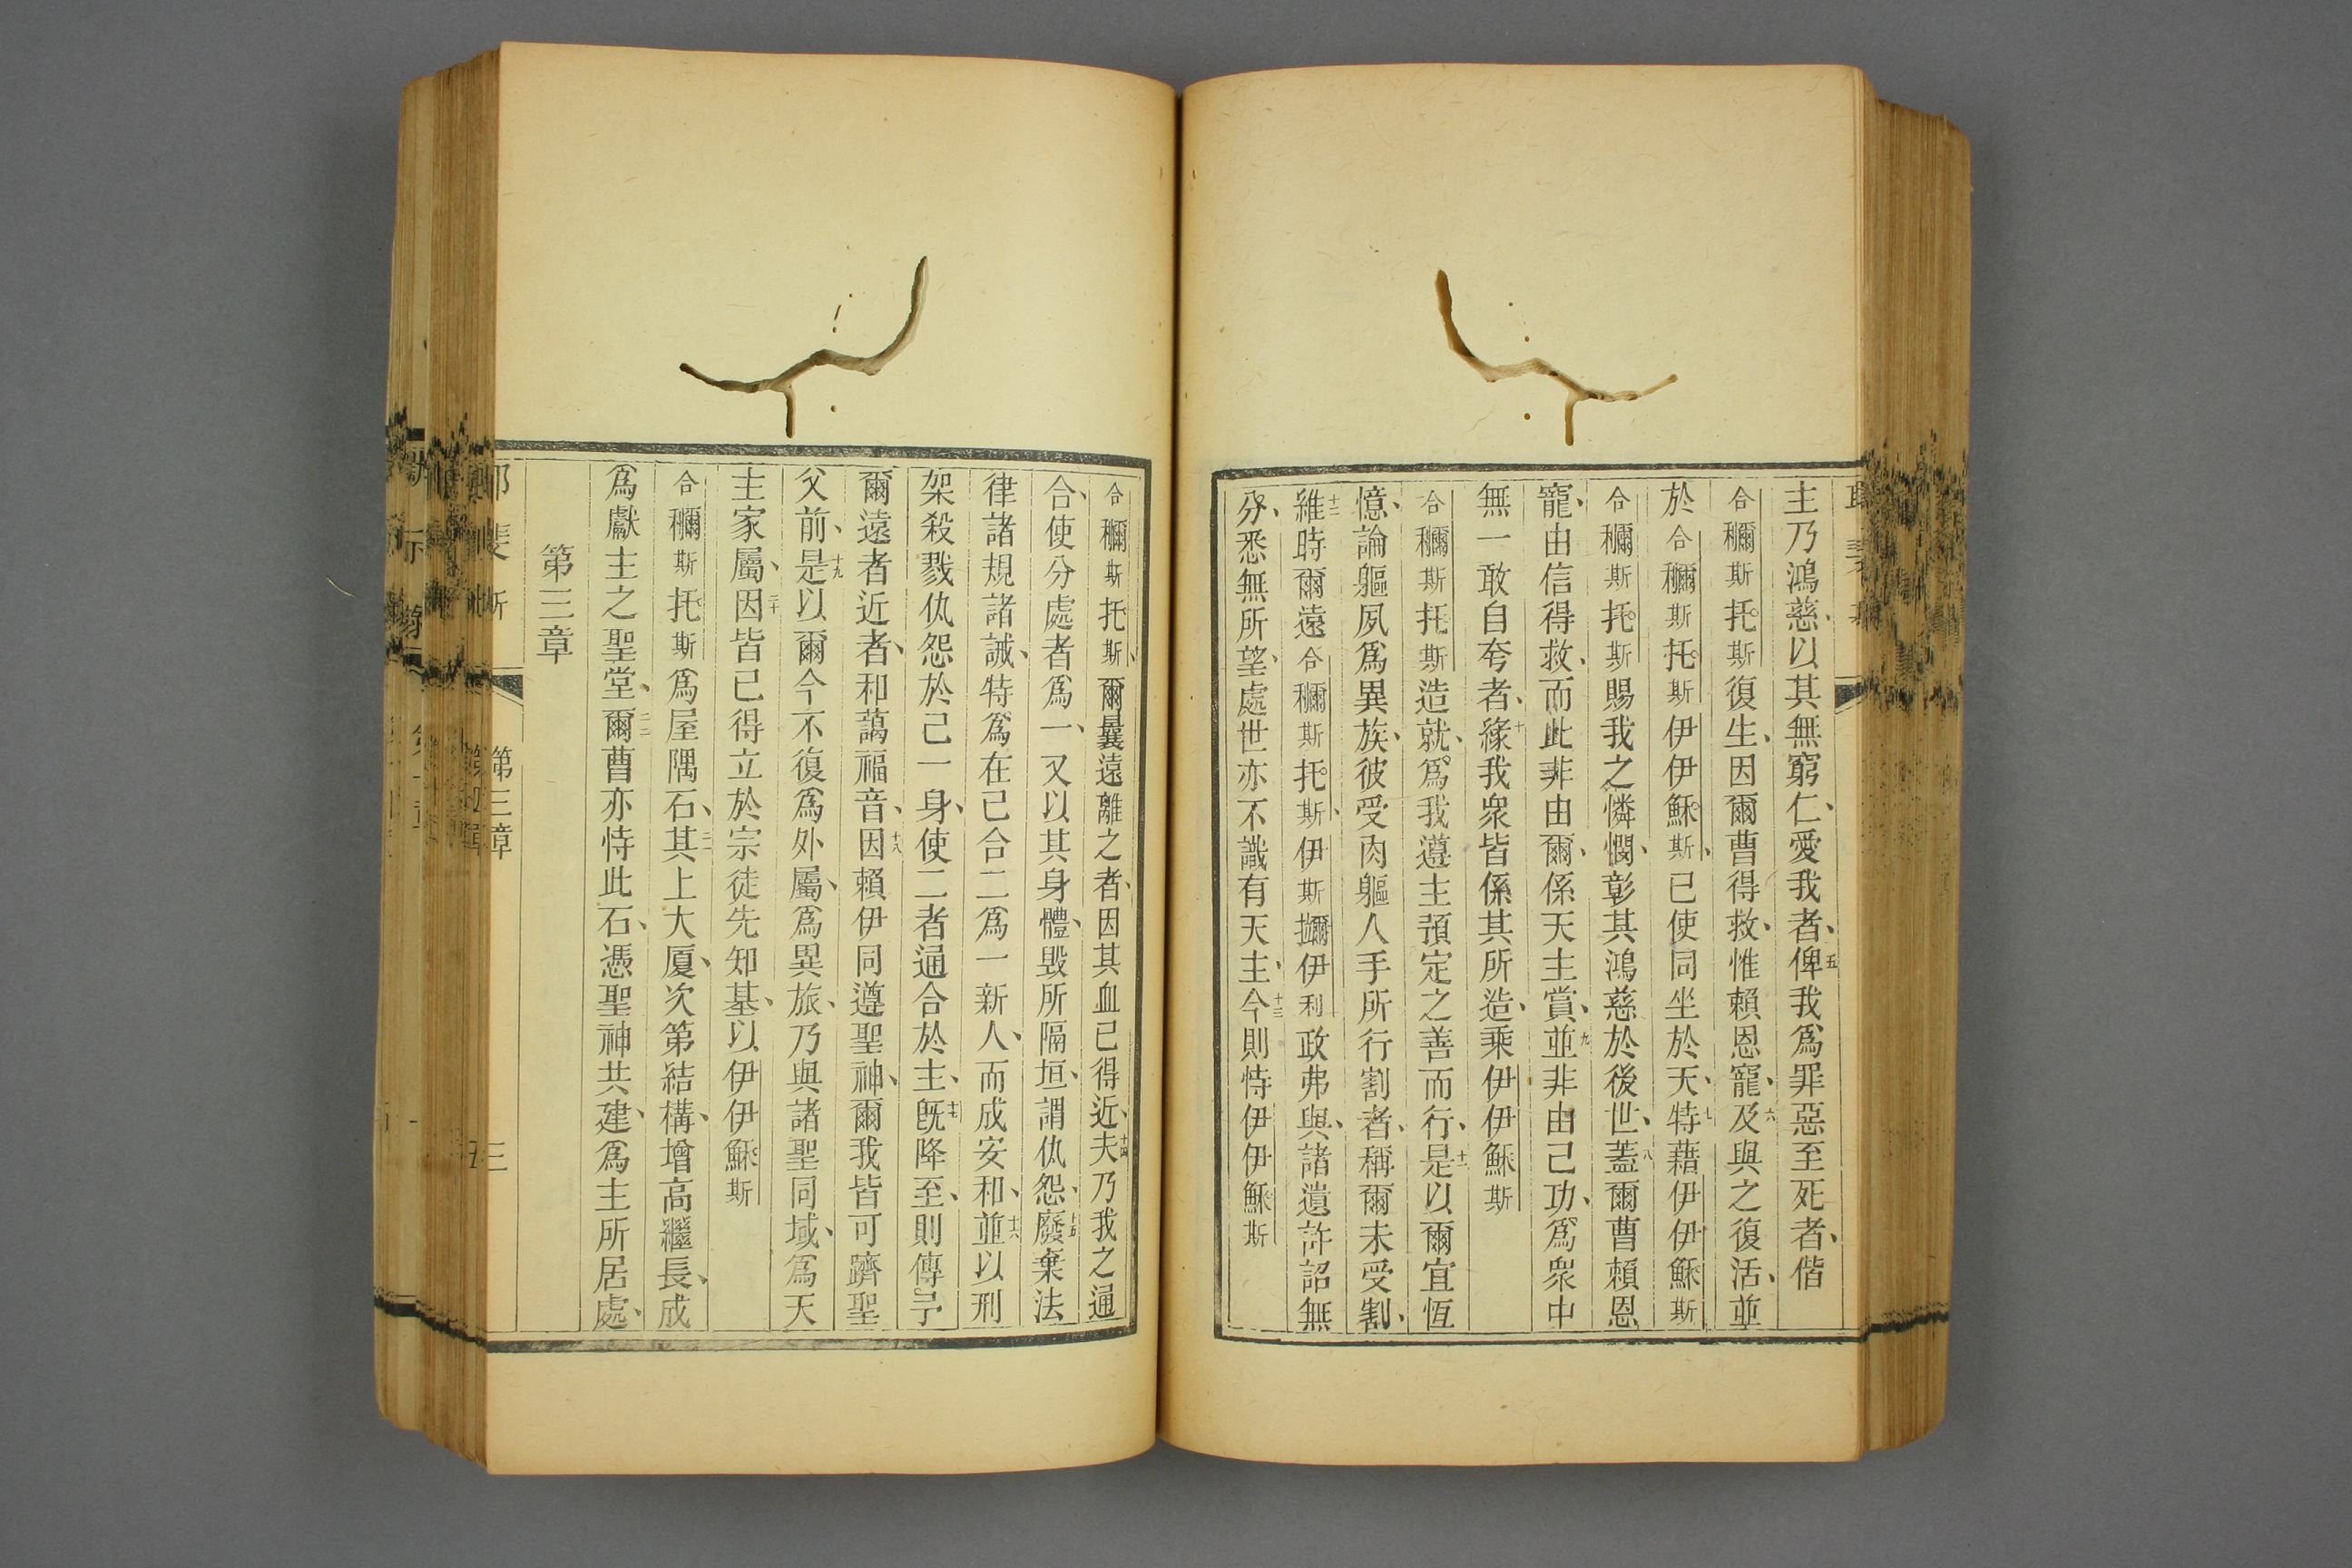 主乃鴻慈、以其無窮仁、愛我者、五俾我爲罪惡至死者、偕
合穪斯托斯復生、因爾曹得救、惟賴恩寵、六及與之復活、並
於合穪斯托斯伊伊穌斯、已使同坐於天、七特藉伊伊穌斯
合穪斯托斯賜我之憐憫、彰其鴻慈於後世、八蓋爾曹賴恩
寵、由信得救、而此非由爾、係天主賞、九並非由己功、爲衆中
無一敢自夸者、十緣我衆皆係其所造、乘伊伊穌斯
合穪斯托斯造就、爲我遵主預定之善而行、十一是以爾宜恆
憶、論軀夙爲異族、彼受肉軀人手所行割者、稱爾未受割、
十二維時爾遠合穪斯托斯、伊斯擟伊利政弗與、諸遺許詔無
分、悉無所望、處世亦不識有天主、十三今則恃伊伊穌斯
合穪斯托斯、爾曩遠離之者、因其血已得近、十四夫乃我之通
合、使分處者爲一、又以其身體、毀所隔垣、謂仇怨、十五廢棄法
律諸規諸誡、特爲在己合二爲一新人、而成安和、十六並以刑
架殺戮仇怨於己一身、使二者通合於主、十七旣降至、則傳予
爾遠者近者、和藹福音、十八因賴伊同遵聖神、爾我皆可躋聖
父前、十九是以爾今不復爲外屬、爲異旅、乃與諸聖同域、爲天
主家屬、二十因皆已得立於宗徒先知基、以伊伊穌斯
合穪斯托斯爲屋隅石、二一其上大厦、次第結構、增高繼長、成
爲獻主之聖堂、二二爾曹亦恃此石、憑聖神共建、爲主所居處、
第三章
第三章
三